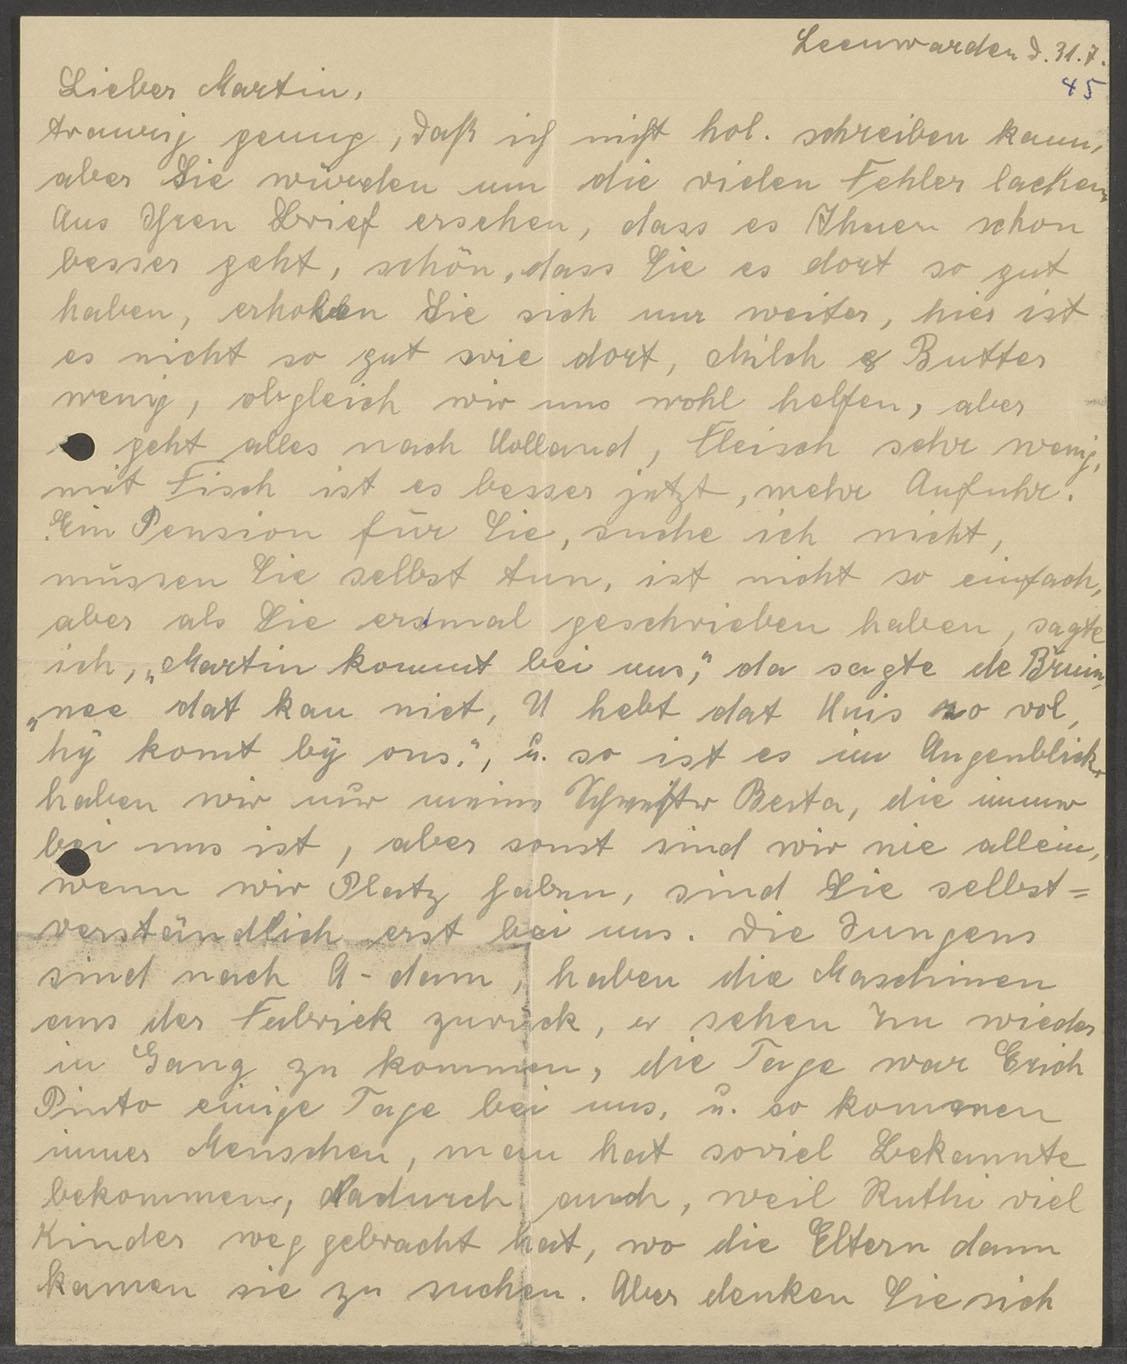 Leeuwarden d. 31.7.
45
Lieber Martin,
traurig genug, daß ich nicht hol. schreiben kann,
aber Sie würden um die vielen Fehler lachen,
Aus Ihren Brief ersehen, dass es Ihnen schon
besser geht, schön, dass Sie es dort so gut
haben, erholen Sie sich nur weiter, hier ist
es nicht so gut wie dort, Milch & Butter
wenig, obgleich wir uns wohl helfen, aber
geht alles nach Holland, Fleisch sehr wenig,
mit Fisch ist es besser jetzt, mehr Anfuhr.
Ein Pension für Sie, suche ich nicht,
müssen Sie selbst tun, ist nicht so einfach,
aber als Sie ersmal geschrieben haben, sagte
ich, „Martin kommt bei uns," da sagte de Bruin,
„nee dat kan niet, U hebt dat Huis zo vol,
hÿ komt bÿ ons.", u. so ist es im Augenblick,
haben wir nur meine Schwester Berta, die immer
bei uns ist, aber sonst sind wir nie allein,
wenn wir Platz haben, sind Sie selbst=
verständlich erst bei uns. Die Jungens
sind nach A-dam, haben die Maschinen
aus der Fabriek zurück, sehen zu wieder
in Gang zu kommen, die Tage war Erich
Pinto einige Tage bei uns, u. so kommen
immer Menschen, man hat soviel Bekannte
bekommen, dadurch auch, weil Ruthi viel
Kinder weg gebracht hat, wo die Eltern dann
kamen sie zu suchen. Aber denken Sie sich